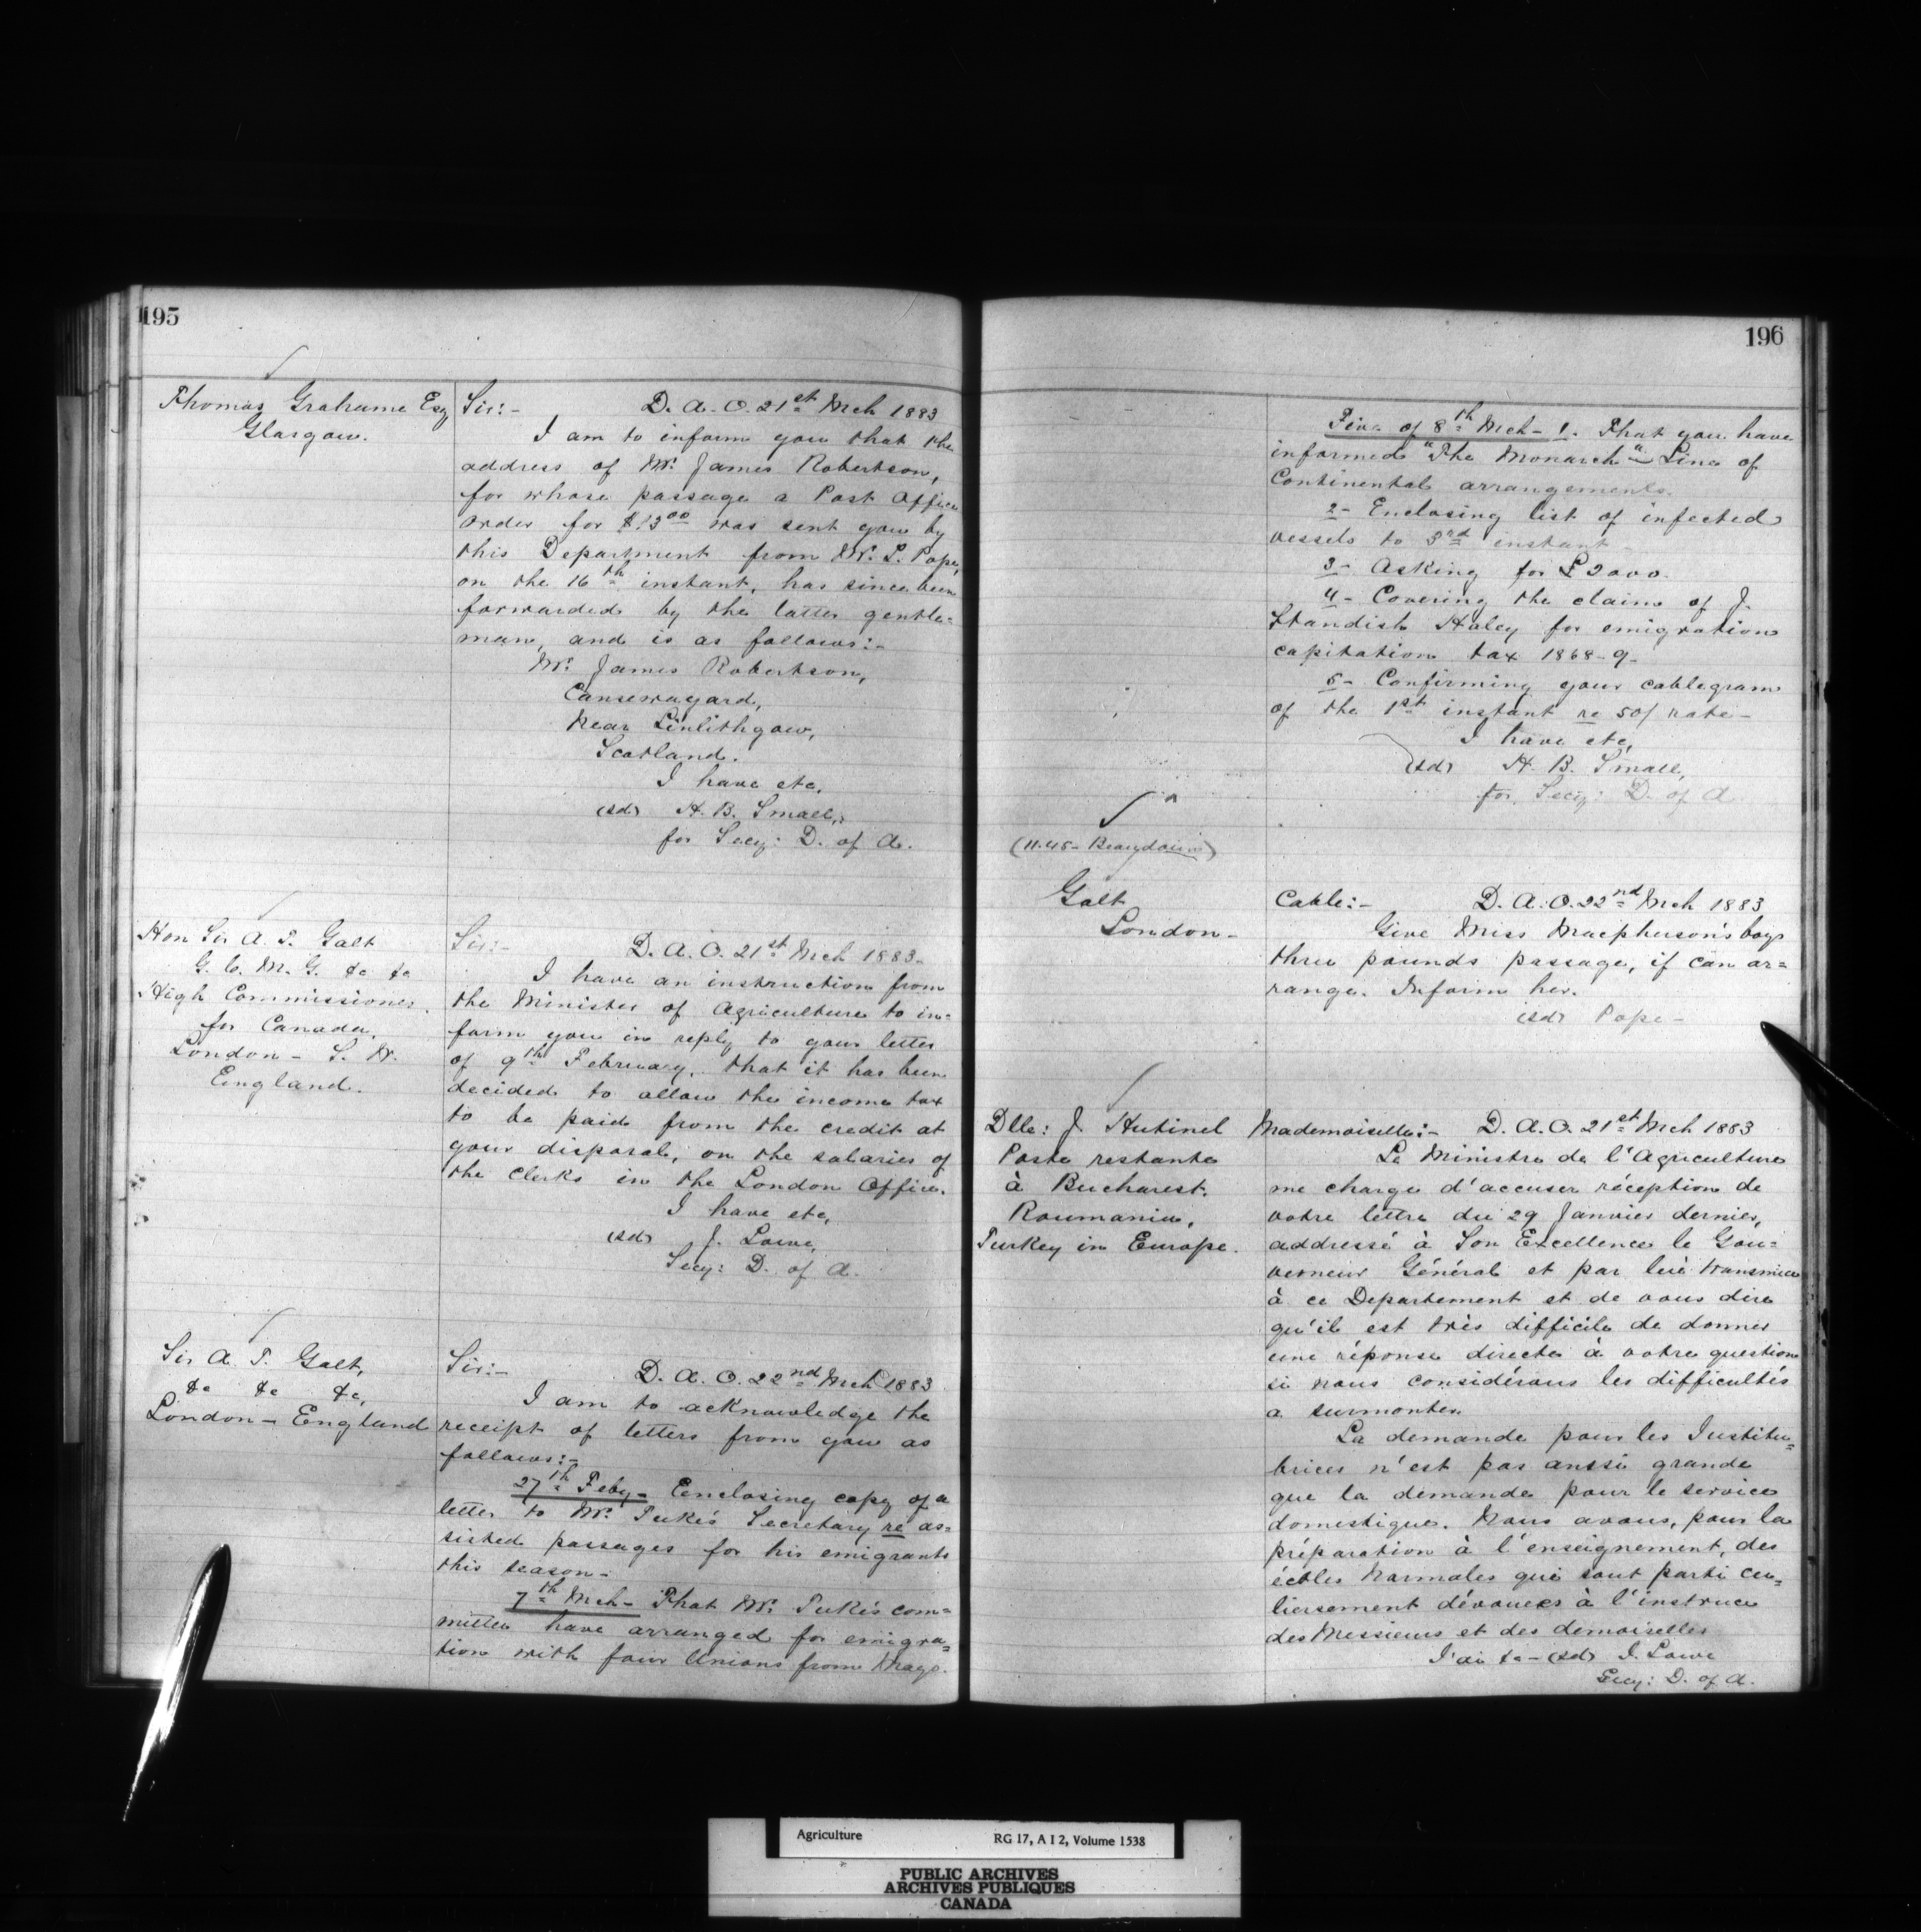 195
Thomas Grahame Esq
Glasgow.
Sir:- D. A. O. 21st Mch 1883
I am to inform you that the
address of Mr. James Robertson,
for whose passage a Post Office
order for $13.00 was sent you by
this Department from Mr. S. Pope,
on the 16th instant, has since been
forwarded by the latter gentle-
man, and is as follows:-
Mr. James Robertson,
Cansewayard,
Near Linlithgow,
Scotland.
I have etc,
(sd) H. B. Small,
for Secy: D. of A.
Hon Sir A. T. Galt
G. C. M. G. &c &c
High Commissioner
for Canada,
London - S. W.
England.
Sir:- D. A. O. 21st Mch 1883-
I have an instruction from
the Minister of Agriculture to in=
form you in reply to your letter
of 9th February, that it has been
decided to allow the income tax
to be paid from the credit at
your disposal, on the salaries of
the Clerks in the London Office.
I have etc,
(sd) J. Lowe,
Secy: D. of A.
Sir A. T. Galt,
&c &c &c,
London - England
Sir:- D. A. O. 22nd Mch 1883
I am to acknowledge the
receipt of letters from you as
follows:-
27th Feby- Enclosing copy of a
letter to Mr. Tuke's Secretary re as=
sisted passages for his emigrants
this season-
7th Mch- That Mr. Tuke's com=
mittee have arranged for emigra=
tion with four Unions from Mayo.
196
Five of 8th Mch- 1. That you have
informed "The Monarch" Line of
Continental arrangements.
2- Enclosing list of infected
vessels to 3rd instant
3- Asking for £2000.
4- Covering the claim of J.
Standish Haley for emigration
capitation tax 1868-9-
5- Confirming your cablegram
of the 1st instant re 50/ rate-
I have etc,
(sd) H. B. Small,
for Secy: D. of A.
(11.45- Beaudoin)
Galt
London-
Cable:- D. A. O. 22nd Mch 1883
Give Miss Macpherson's boys
three pounds passage, if can ar=
range. Inform her.
(sd) Pope-
Dlle: J. Hutinel
Poste restante
à Bucharest.
Roumania,
Turkey in Europe.
Mademoiselle:- D. A. O. 21st Mch 1883
Le Ministre de l'Agriculture
me charge d'accuser réception de
votre lettre du 29 Janvier dernier,
addressé à Son Excellence le Gou=
verneur Général et par lui transmise
à ce Departement et de vous dire
qu'il est très difficile de donner
une réponse directe à votre question
si nous considérons les difficultés
a surmonter.
La demande pour les Institu=
trices n'est pas aussi grande
que la demande pour le service
domestique. Nous avons, pour la
préparation à l'enseignement, des
écoles Normales qui sont particu=
lièrsement dévouees à l'instruc
des Messieurs et des demoiselles
J'ai &c- (sd) J. Lowe
Secy: D. of A.
Agriculture RG 17, A I 2, Volume 1538
PUBLIC ARCHIVES
ARCHIVES PUBLIQUES
CANADA